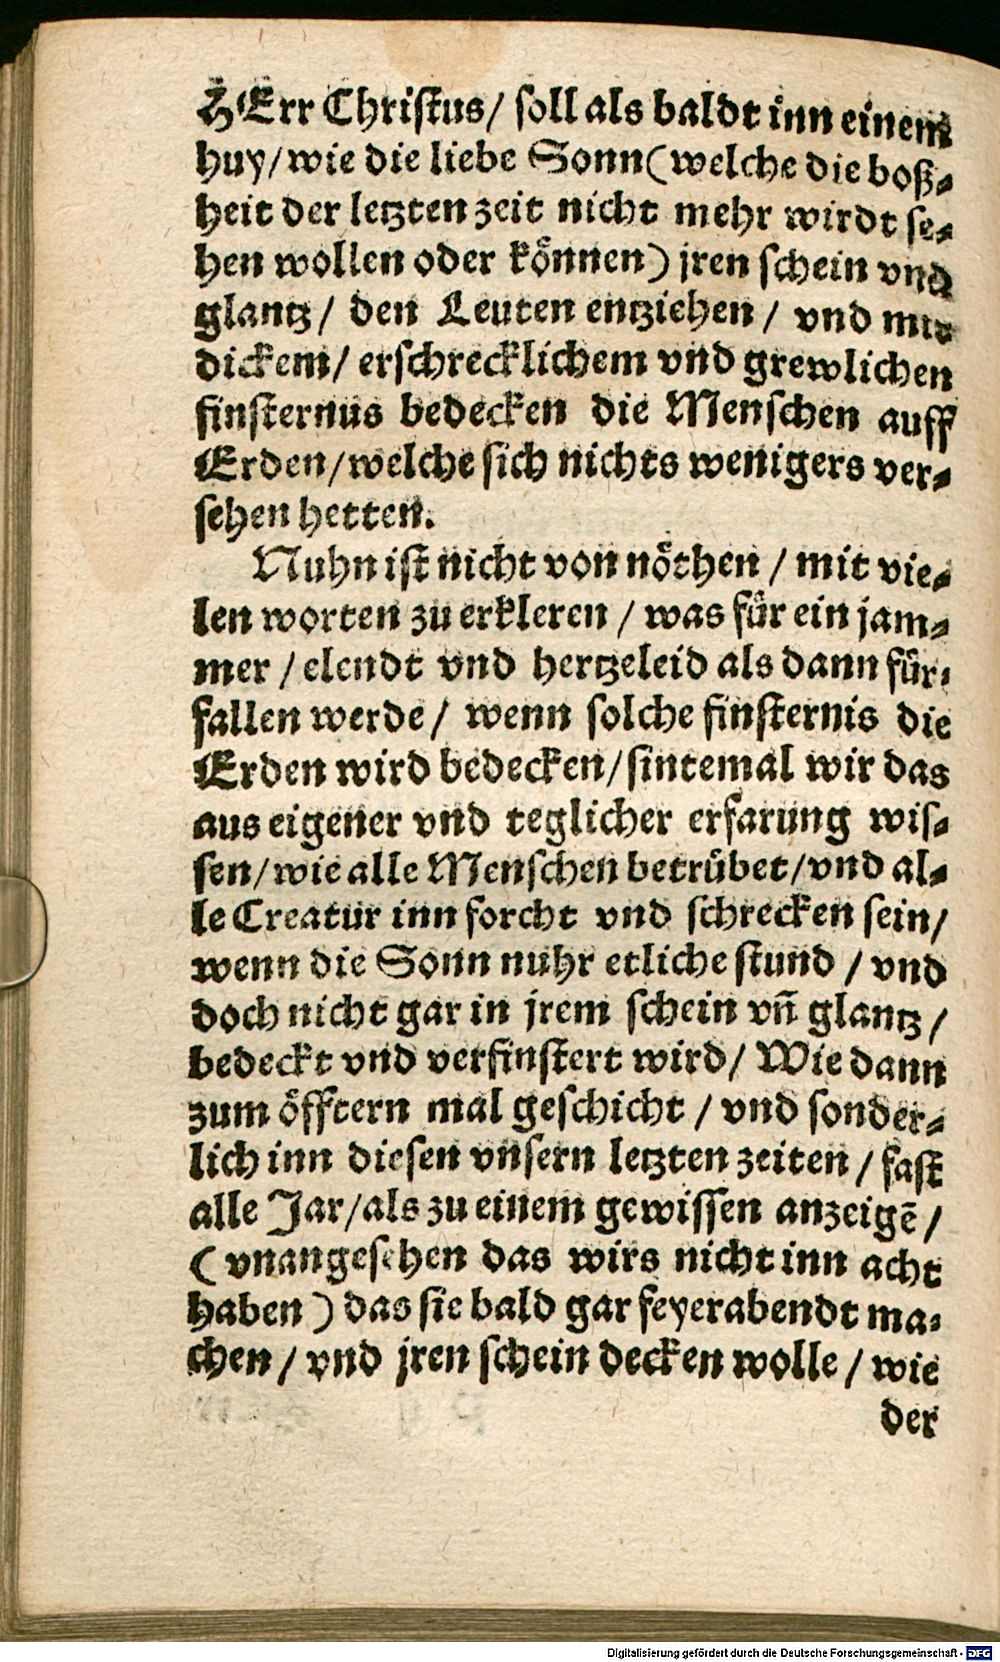 HErr Christus/ soll als baldt inn einem
huy/ wie die liebe Sonn (welche die boß⸗
heit der letzten zeit nicht mehr wirdt se⸗
hen wollen oder können) jren schein vnd
glantz/ den Leuten entziehen/ vnd mit
dickem/ erschrecklichem vnd grewlichen
finsternus bedecken die Menschen auff
Erden/ welche sich nichts wenigers ver⸗
sehen hetten.
Nuhn ist nicht von nöthen/ mit vie⸗
len worten zu erkleren/ was für ein jam⸗
mer/ elendt vnd hertzeleid als dann für⸗
fallen werde/ wenn solche finsternis die
Erden wird bedecken/ sintemal wir das
aus eigener vnd teglicher erfarung wis⸗
sen/ wie alle Menschen betrübet/ vnd al⸗
le Creatur inn forcht vnd schrecken sein/
wenn die Sonn nuhr etliche stund/ vnd
doch nicht gar in jrem schein vñ glantz/
bedeckt vnd verfinstert wird/ Wie dann
zum öfftern mal geschicht/ vnd sonder⸗
lich inn diesen vnsern letzten zeiten/ fast
alle Jar/ als zu einem gewissen anzeigẽ/
(vnangesehen das wirs nicht inn acht
haben) das sie bald gar feyerabendt ma⸗
chen/ vnd jren schein decken wolle/ wie
der
Digitalisierung gefördert durch die Deutsche Forschungsgemeinschaft - DFG